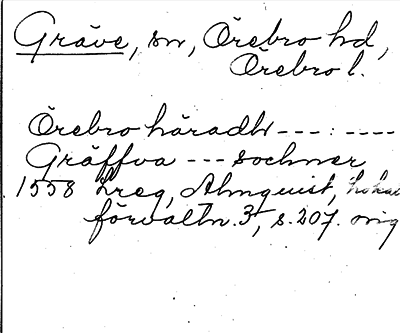 Gräve, sn, Örebro hd,
Örebro l.
Örebro häradhr ---:----
Gräffva --- sochner
1558 Lreg, Almquist, lokal
förvaltn. 3, s. 207. orig